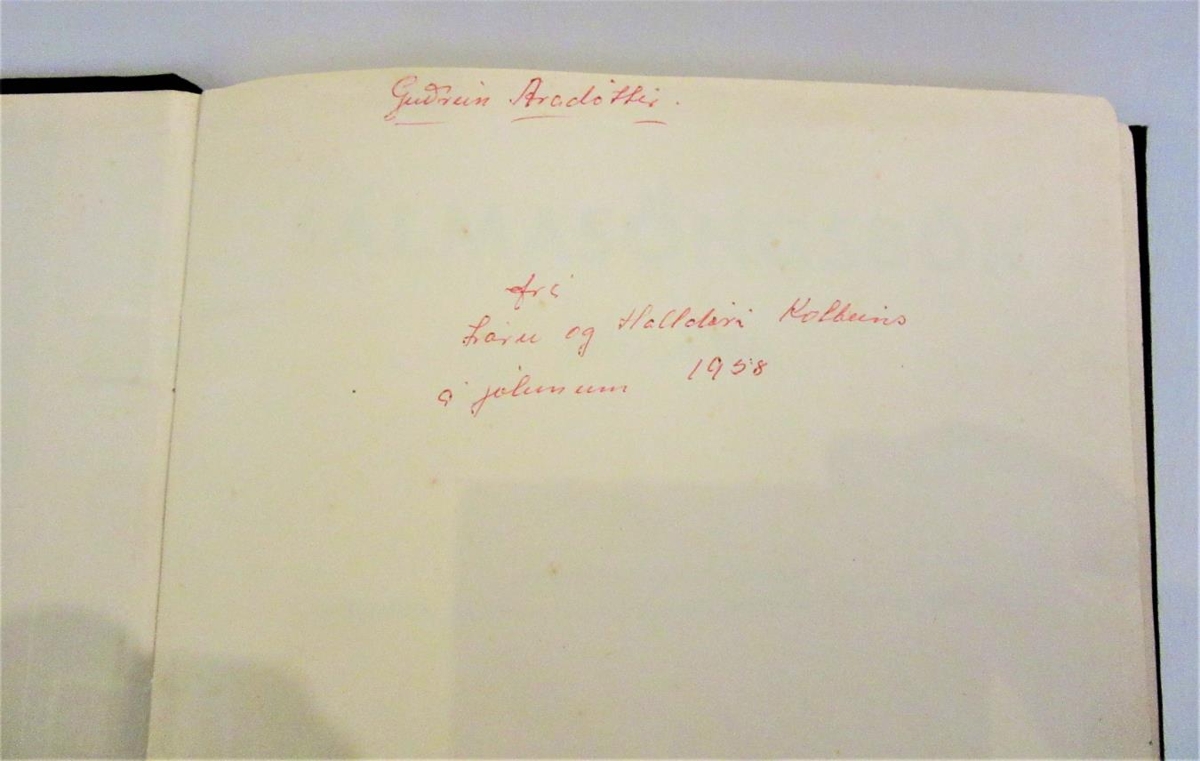 Guðrún Aradóttir.
frá
Láru og Halldóri Kolbeins
á jólunum 1958